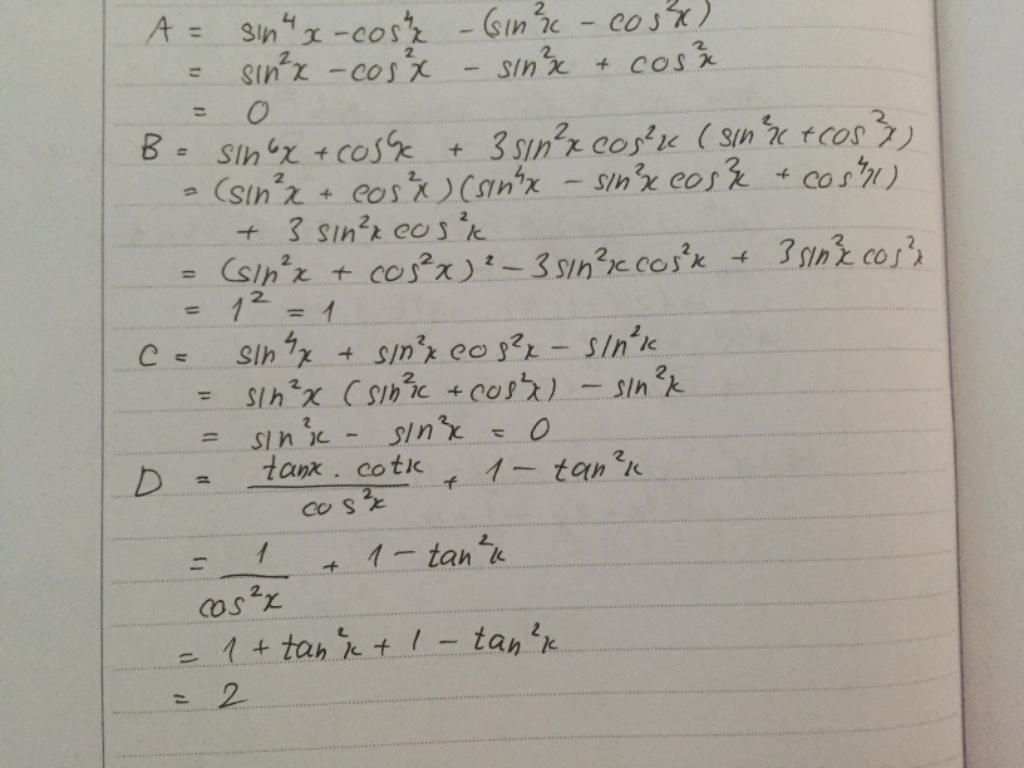 A = sin⁴x - cos⁴x - (sin²x - cos²x)
= sin²x - cos²x - sin²x + cos²x
= 0
B = sin⁶x + cos⁶x + 3 sin²x cos²x (sin²x + cos²x)
= (sin²x + cos²x)(sin⁴x - sin²x cos²x + cos⁴x)
+ 3 sin²x cos²x
= (sin²x + cos²x)² - 3 sin²x cos²x + 3 sin²x cos²x
= 1² = 1
C = sin⁴x + sin²x cos²x - sin²x
= sin²x (sin²x + cos²x) - sin²x
= sin²x - sin²x = 0
D = tanx . cotx / cos²x + 1 - tan²x
= 1 / cos²x + 1 - tan²x
= 1 + tan²x + 1 - tan²x
= 2